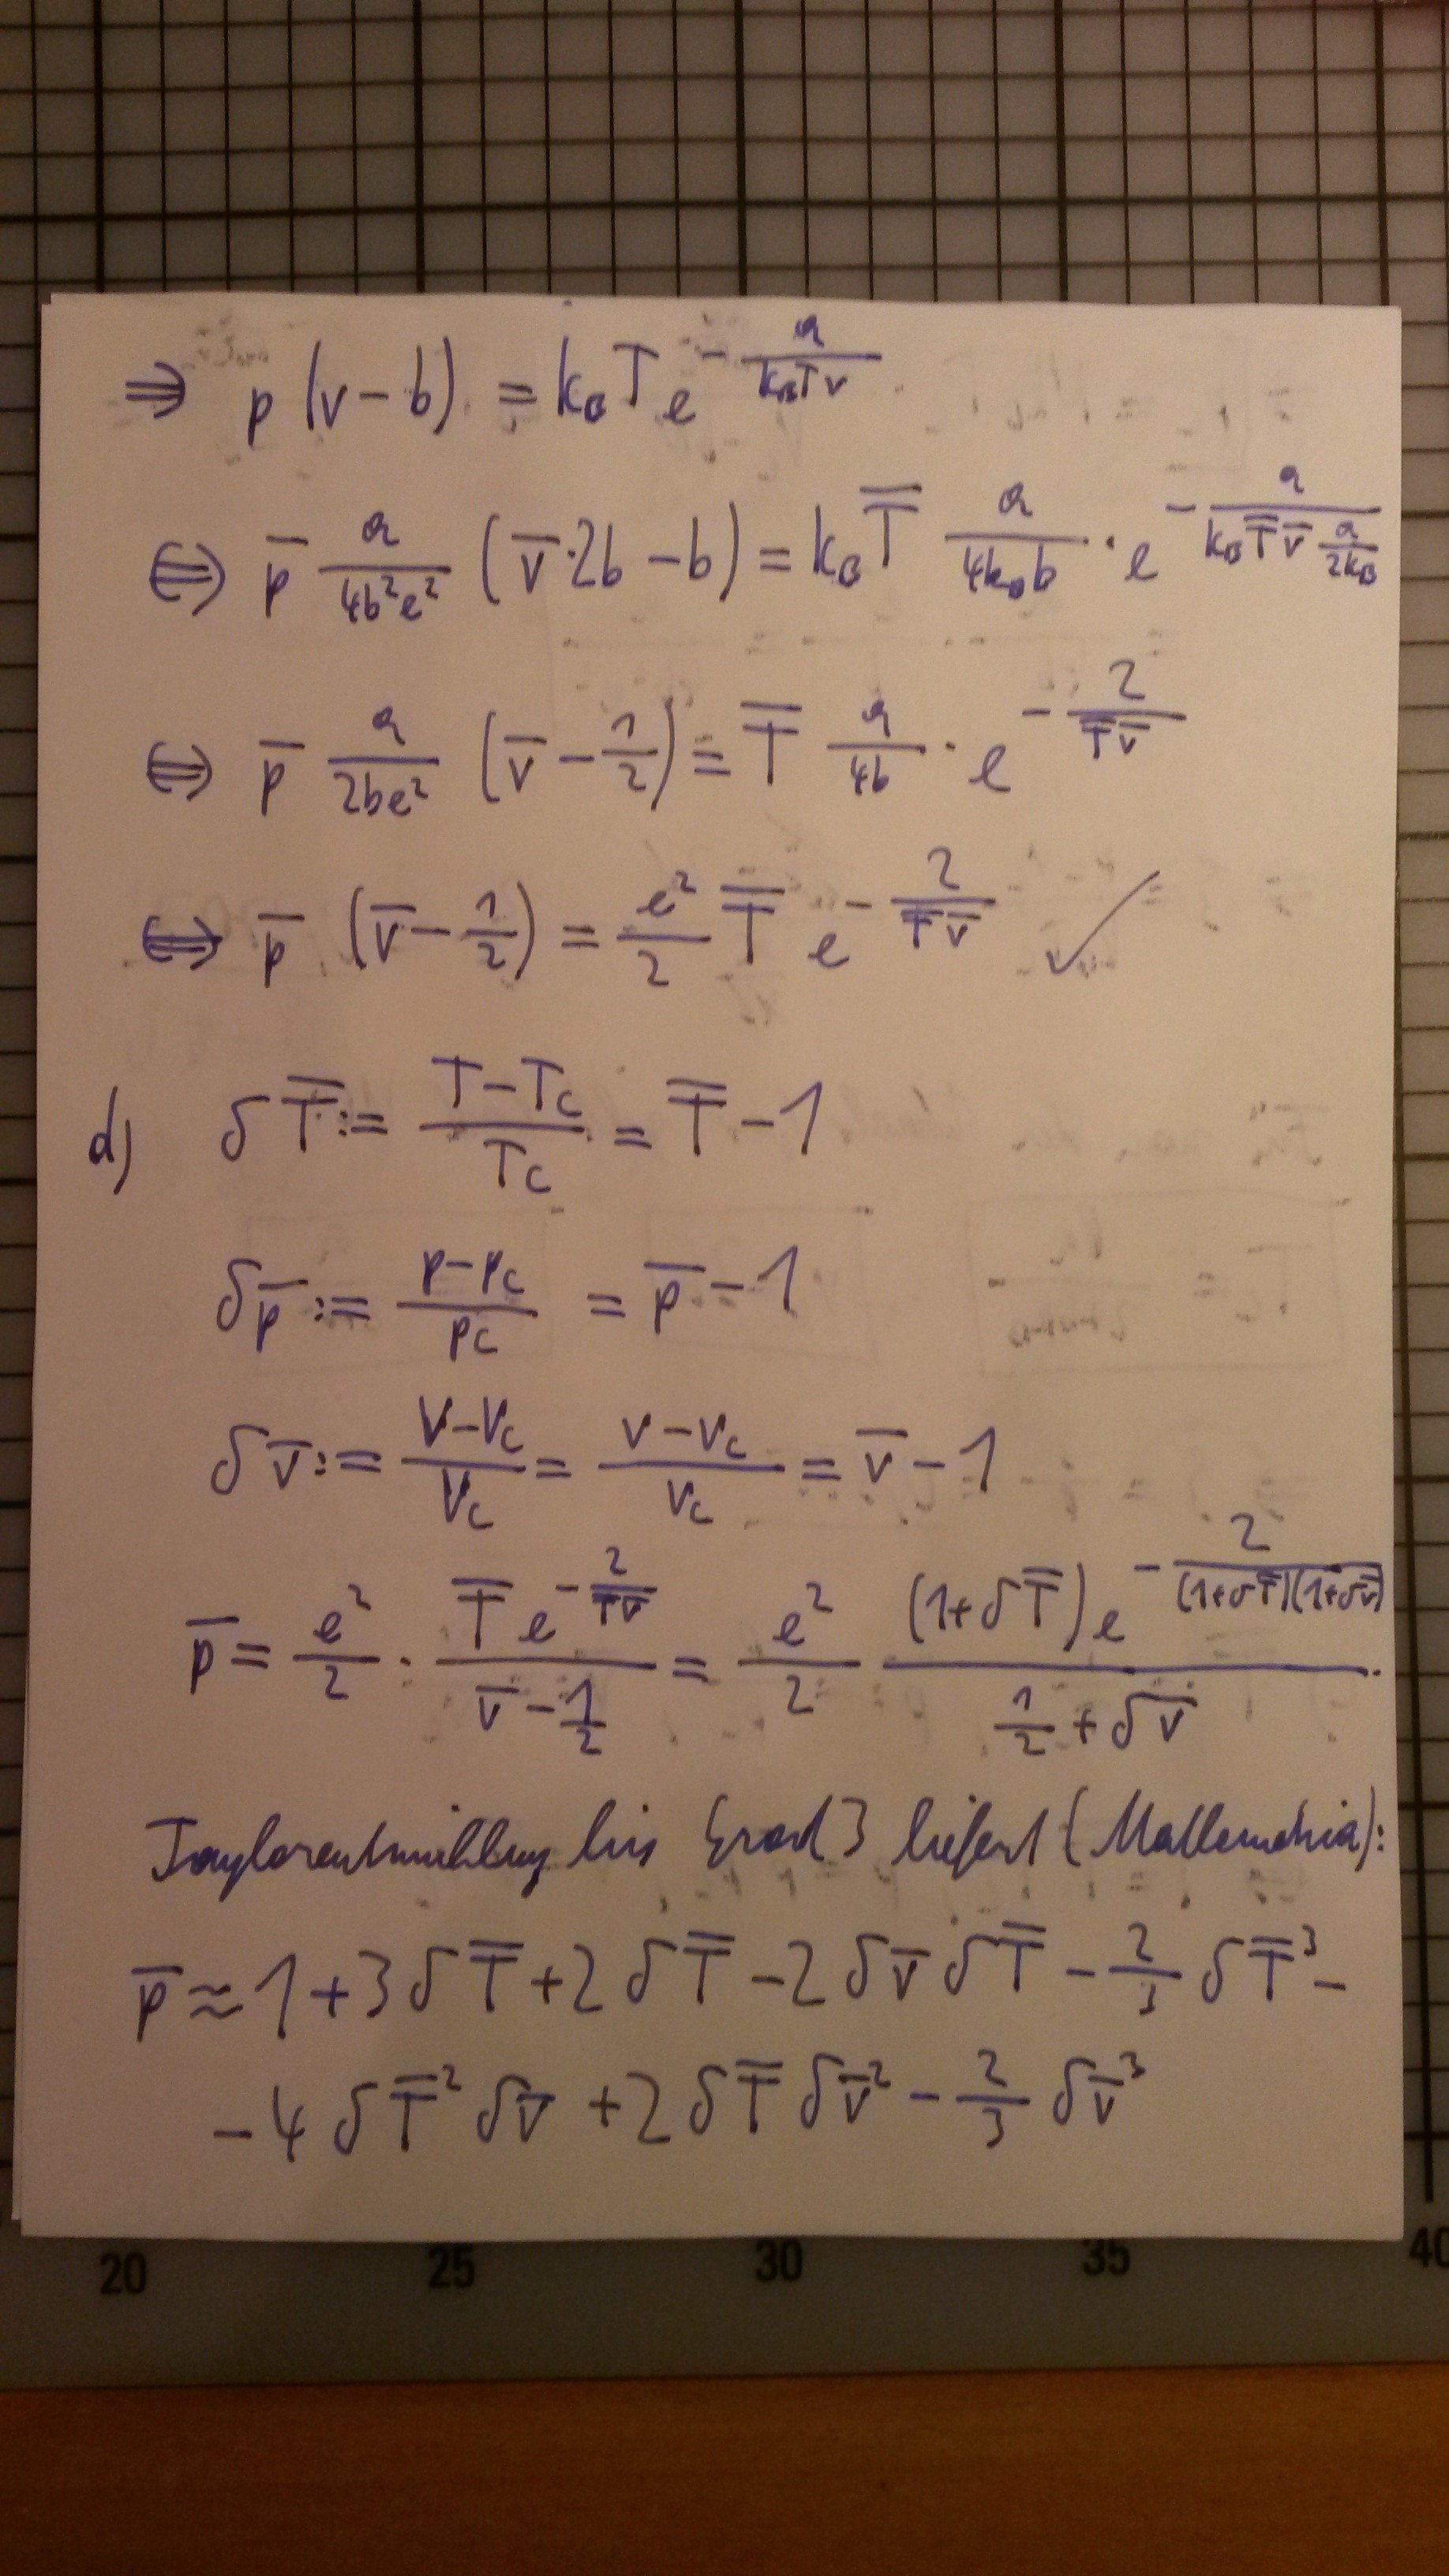 ⇒ p (v − b) = k_B T e^{−\frac{a}{k_B T v}}
⇔ \bar{p} \frac{a}{4b²e²} (\bar{v}·2b − b) = k_B \bar{T} \frac{a}{4k_B b} · e^{−\frac{a}{k_B \bar{T} \bar{v} \frac{a}{2k_B}}}
⇔ \bar{p} \frac{a}{2be²} (\bar{v} − \frac{1}{2}) = \bar{T} \frac{a}{4b} · e^{−\frac{2}{\bar{T}\bar{v}}}
⇔ \bar{p} (\bar{v} − \frac{1}{2}) = \frac{e²}{2} \bar{T} e^{−\frac{2}{\bar{T}\bar{v}}} ✓
d) δ\bar{T} := \frac{T − T_C}{T_C} = \bar{T} − 1
δ\bar{p} := \frac{p − p_C}{p_C} = \bar{p} − 1
δ\bar{v} := \frac{V − V_C}{V_C} = \frac{v − v_C}{v_C} = \bar{v} − 1
\bar{p} = \frac{e²}{2} · \frac{\bar{T} e^{−\frac{2}{\bar{T}\bar{v}}}}{\bar{v} − \frac{1}{2}} = \frac{e²}{2} \frac{(1+δ\bar{T}) e^{−\frac{2}{(1+δ\bar{T})(1+δ\bar{v})}}}{\frac{1}{2} + δ\bar{v}}.
Taylorentwicklung bis Grad 3 liefert (Mathematica):
\bar{p} ≈ 1 + 3δ\bar{T} + 2δ\bar{T} − 2δ\bar{v}δ\bar{T} − \frac{2}{3}δ\bar{T}³ −
− 4δ\bar{T}²δ\bar{v} + 2δ\bar{T}δ\bar{v}² − \frac{2}{3}δ\bar{v}³
20 25 30 35 40